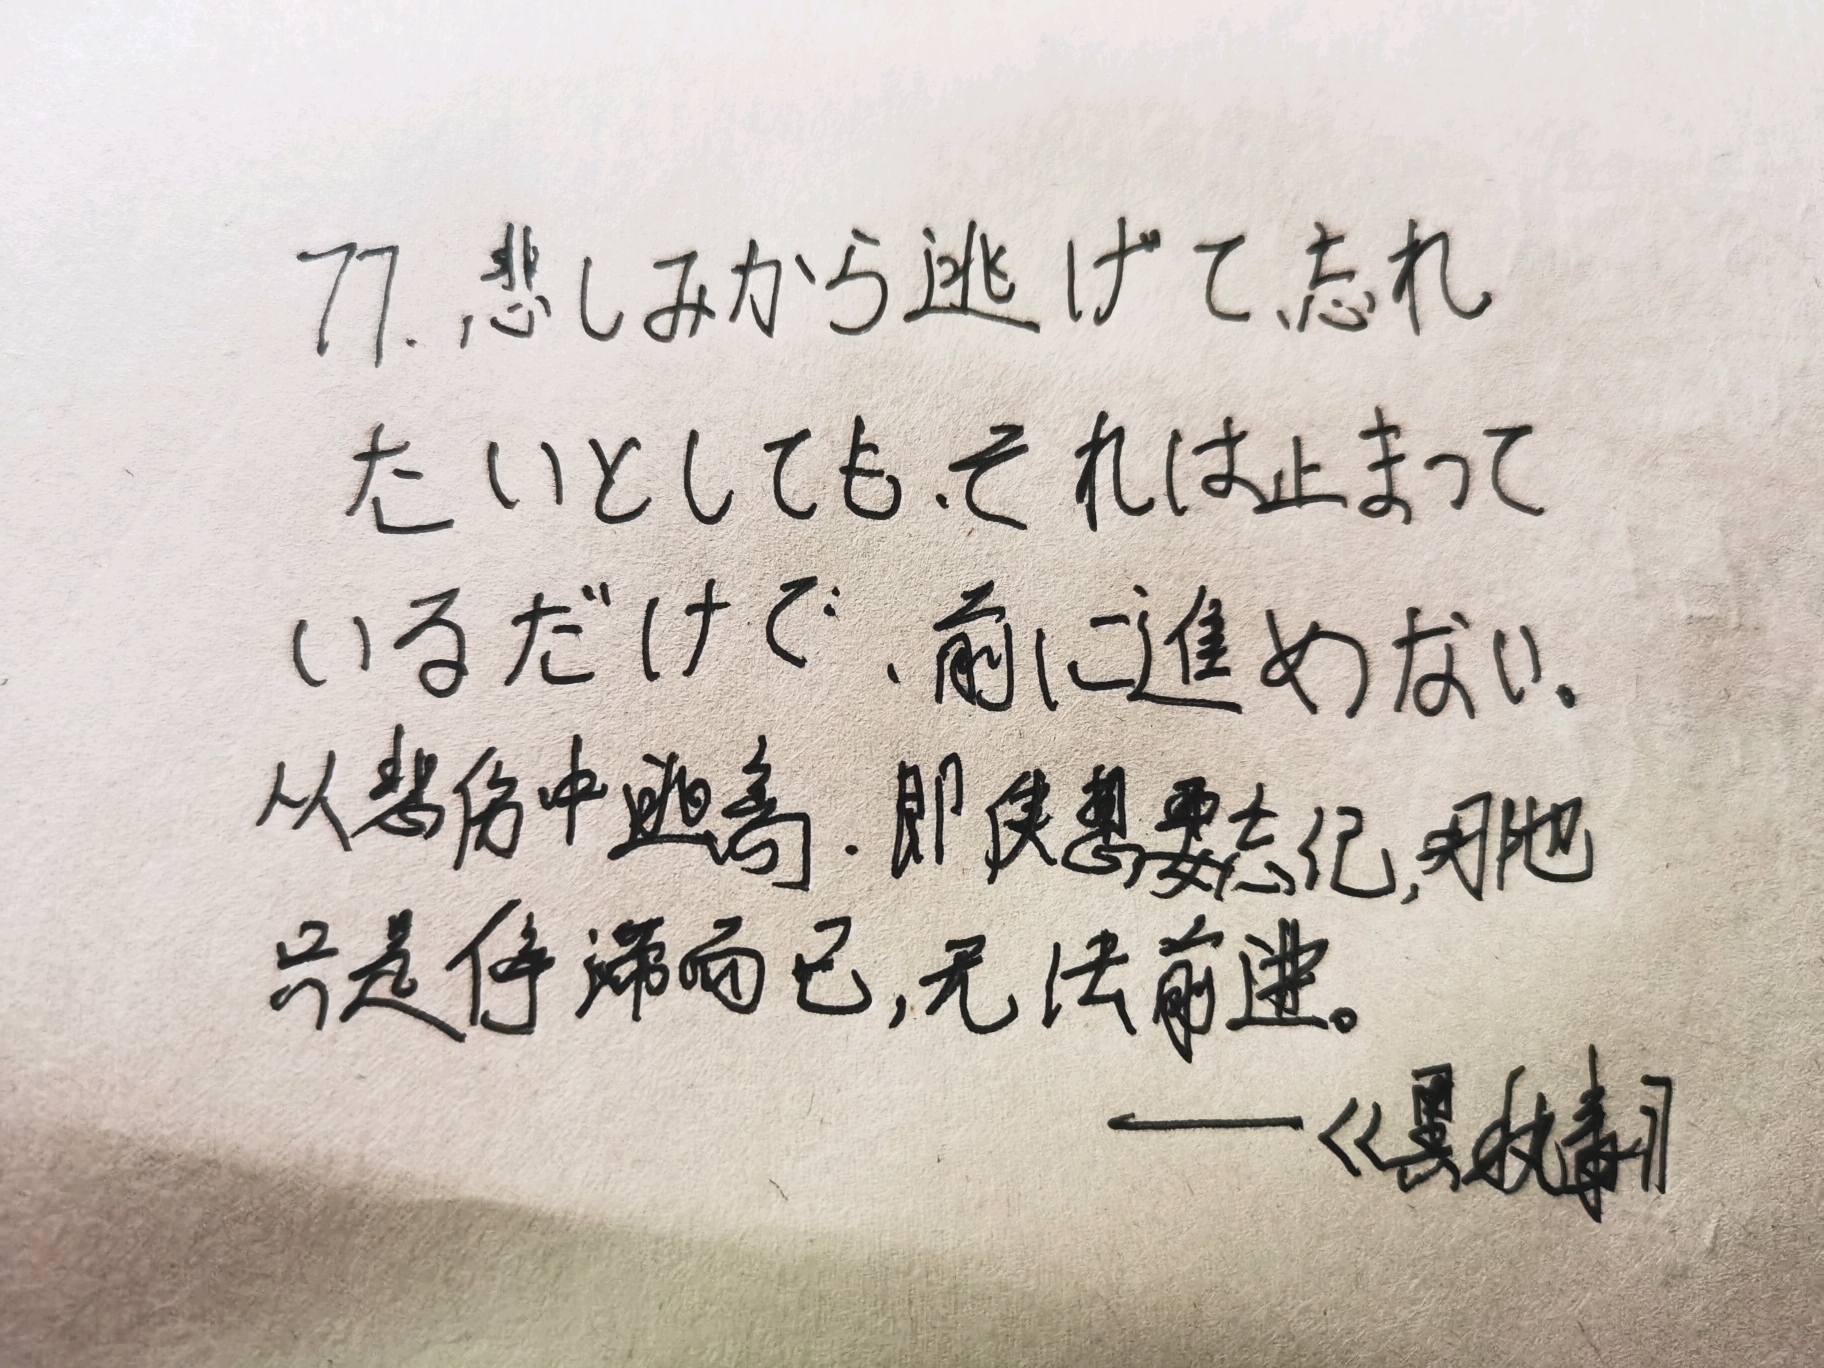 77.悲しみから逃げて、忘れ
たいとしても、それは止まって
いるだけで、前に進めない。
从悲伤中逃离.即使想要忘记,那也
只是停滞而已,无法前进。
——《黑执事》